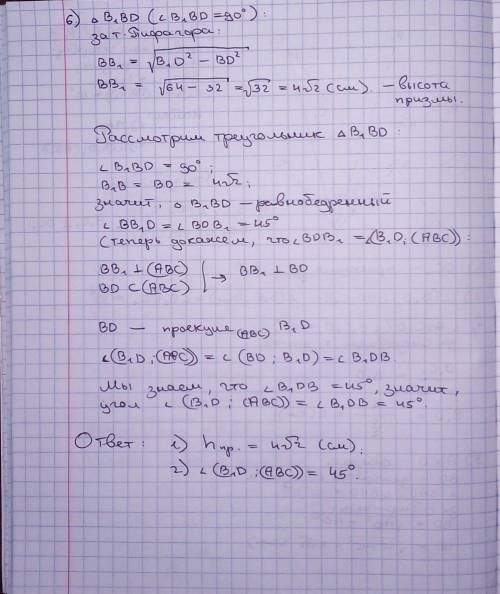 6) △ B₁BD ( ∠ B₁BD = 90° ) :
за т. Пифагора:
BB₁ = √(B₁D² − BD²)
BB₁ = √(64 − 32) = √32 = 4√2 (см). — высота
призмы.
Рассмотрим треугольник △ B₁BD :
∠ B₁BD = 90° ;
B₁B = BD = 4√2 ;
значит, △ B₁BD — равнобедренный
∠ BB₁D = ∠ BDB₁ = 45°
(теперь докажем, что ∠BDB₁ = ∠(B₁D; (ABC)) :
BB₁ ⊥ (ABC)
BD ⊂ (ABC) → BB₁ ⊥ BD
BD — проекция (ABC) B₁D
∠(B₁D ; (ABC)) = ∠ (BD ; B₁D) = ∠ B₁DB.
Мы знаем, что ∠ B₁DB = 45°, значит,
угол ∠ (B₁D ; (ABC)) = ∠ B₁DB = 45°.
Ответ : 1) hпр. = 4√2 (см) ;
2) ∠ (B₁D ; (ABC)) = 45°.